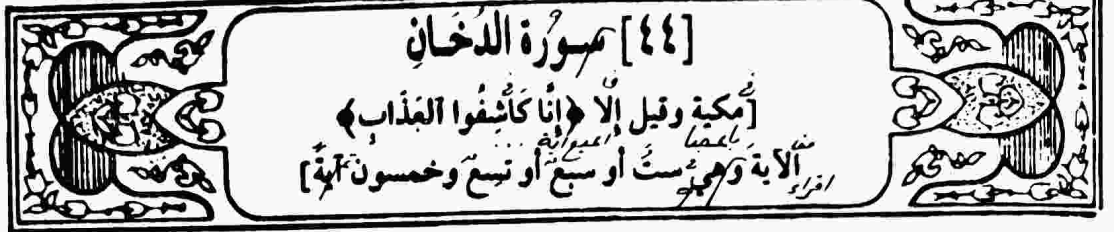 [٤٤] سورة الدُّخَانِ
[مكية وقيل إلّا ﴿إِنَّا كَاشِفُوا العَذَابِ﴾
الآية وهي ستٌ أو سبعٌ أو تسعٌ وخمسون آيةً]